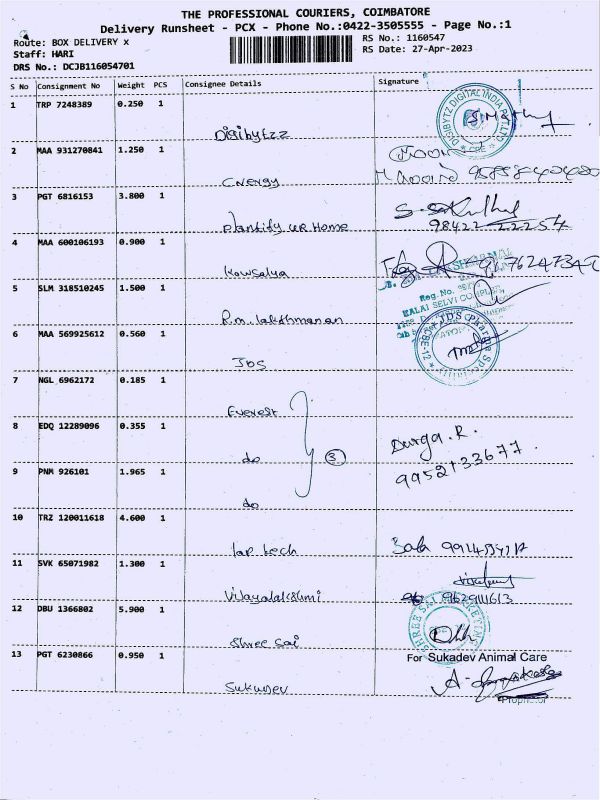 THE PROFESSIONAL COURIERS, COIMBATORE
Delivery Runsheet - PCX - Phone No.:0422-3505555 - Page No.:1
Route: BOX DELIVERY x
RS No.: 1160547
Staff: HARI
RS Date: 27-Apr-2023
DRS No.: DCJB116054701
S No Consignment No Weight PCS Consignee Details Signature
1 TRP 7248389 0.250 1
DIGIBYTZ DIGITAL INDIA PVT LTD
CBE
Digibytzz
2 MAA 931270841 1.250 1
CNERGY
3 PGT 6816153 3.800 1
98422 22254
Plantify UR Home
4 MAA 600106193 0.900 1
Kowsalya
5 SLM 318510245 1.500 1
Reg. No.
KALAI SELVI COMPLEX
R.m. lakshmanan
6 MAA 569925612 0.560 1
JDS
7 NGL 6962172 0.185 1
Everest
8 EDQ 12289096 0.355 1
do
3
Durga.R.
9952133677
9 PNM 926101 1.965 1
do
10 TRZ 120011618 4.600 1
Iar tech
Bala
11 SVK 65071982 1.300 1
Vijayalakshmi
9629111613
12 DBU 1366802 5.900 1
SHREE SAI MARKETING
Shree Sai
13 PGT 6230866 0.950 1
For Sukadev Animal Care
Sukadev
Proprietor